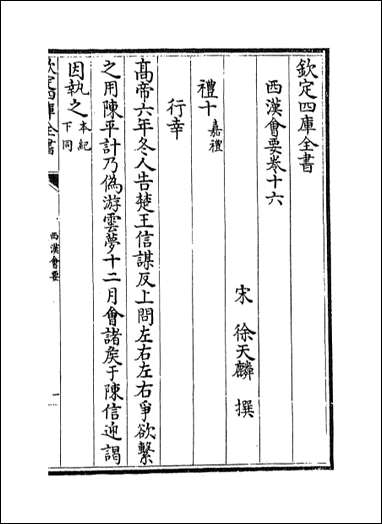 欽定四庫全書
西漢會要卷十六
宋 徐天麟 撰
禮十 嘉禮
行幸
髙帝六年冬人告楚王信謀反上問左右左右爭欲繫
之用陳平計乃偽游雲夢十二月會諸矦于陳信迎謁
因執之 本紀下同
欽定四庫全書
西漢會要
一